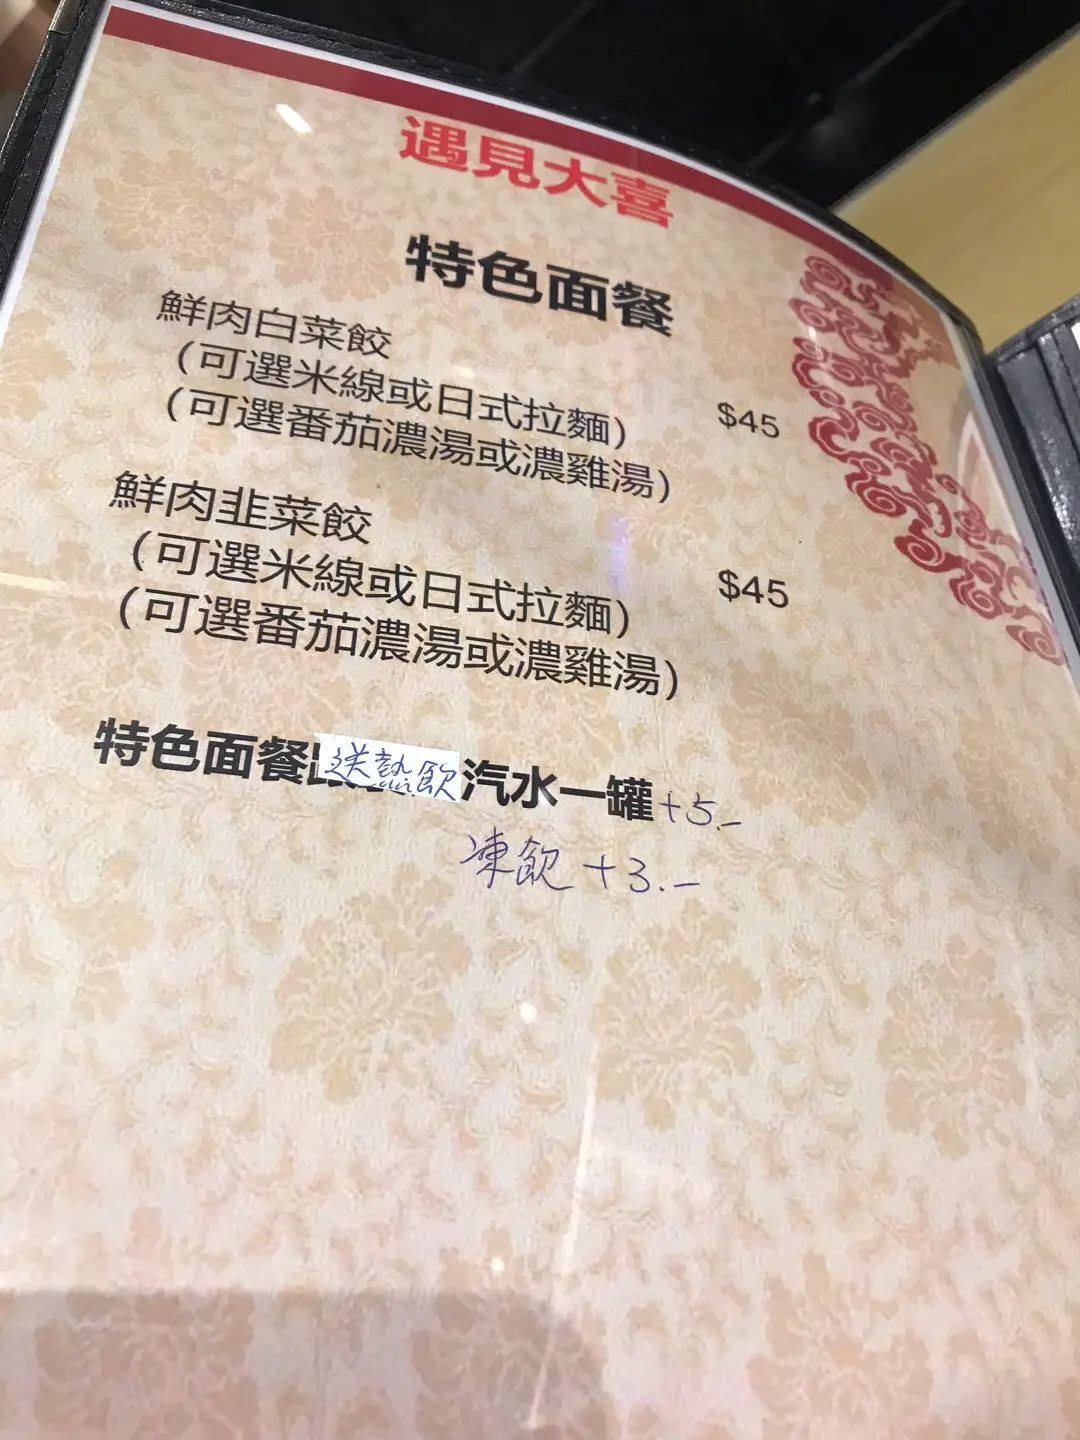 遇見大喜
特色面餐
鮮肉白菜餃
(可選米線或日式拉麵) $45
(可選番茄濃湯或濃雞湯)
鮮肉韭菜餃
(可選米線或日式拉麵) $45
(可選番茄濃湯或濃雞湯)
特色面餐送熱飲汽水一罐+5.-
凍飲 +3.-